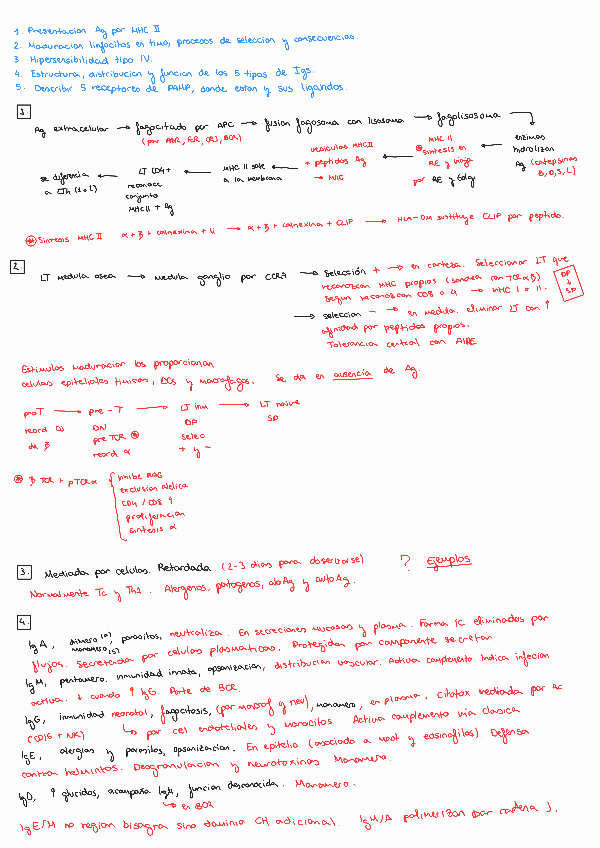 1. Presentacion Ag por MHC II
2. Maduracion linfocitos en timo, procesos de seleccion y consecuencias.
3 Hipersensibilidad tipo IV.
4. Estructura, distribucion y funcion de los 5 tipos de Igs.
5. Describir 5 receptores de PAMP, donde estan y sus ligandos.
1.
Ag extracelular → fagocitado por APC → fusion fagosoma con lisosoma → fagolisosoma
(por ADR, FcR, CR3, BCR)
enzimas hidrolizan Ag (catepsinas B, D, S, L)
MHC II sintesis en RE y viaja por RE y Golgi
vesiculas MHC II + peptidos Ag → MIIC
MHC II sale a la membrana
LT CD4+ reconoce conjunto MHC II + Ag
se diferencia a LTh (1 o 2)
Sintesis MHC II α + β + calnexina + Ii → α + β + calnexina + CLIP → HLA-DM sustituye CLIP por peptido.
2.
LT medula osea → medula ganglio por CCR7 → Selección + → en corteza. Seleccionar LT que
reconozcan MHC propios (sondea con TCR αβ)
Segun reconozcan CD8 o 4 → MHC I o II.
DP ↓ SP
→ seleccion - → en medula. eliminar LT con ↑
afinidad por peptidos propios.
Tolerancia central con AIRE
Estimulos maduracion los proporcionan
celulas epiteliales timicas, DCs y macrofagos. Se da en ausencia de Ag.
proT → pre-T → LT inm → LT naive
reord DJ DN DP SP
de β pre TCR Selec
reord α + y -
β TCR + pTCRα
inhibe RAG
exclusion alelica
CD4 / CD8 ↑
proliferacion
sintesis α
3. Mediada por celulas. Retardada (2-3 dias para observarse) ? Ejemplos
Normalmente Tc y Th1. Alergenos, patogenos, aloAg y autoAg.
4.
IgA, dimero (2), monomero (s) parasitos, neutraliza. En secreciones mucosas y plasma. Forma IC eliminados por
flujos. Secretada por celulas plasmaticas. Protegida por componente secretor
IgM, pentamero. inmunidad innata, opsonizacion, distribucion vascular. Activa complemento Indica infeccion
activa. ↓ cuando ↑ IgG. Parte de BCR.
IgG, inmunidad neonatal, fagocitosis, (por macrof y neu), monomero, en plasma. Citotox mediada por Ac
(CD16 + NK) ↳ por cel endoteliales y monocitos Activa complemento via clasica
IgE, alergias y parasitos, opsonizacion. En epitelio (asociado a mast y eosinofilos) Defensa
contra helmintos. Desgranulacion y neurotoxinas Monomero.
IgD, ↑ glucidos, acompaña IgM, funcion desconocida. Monomero.
↳ en BCR
IgE/M no region bisagra sino dominio CH adicional. IgM/A polimerizan por cadena J.